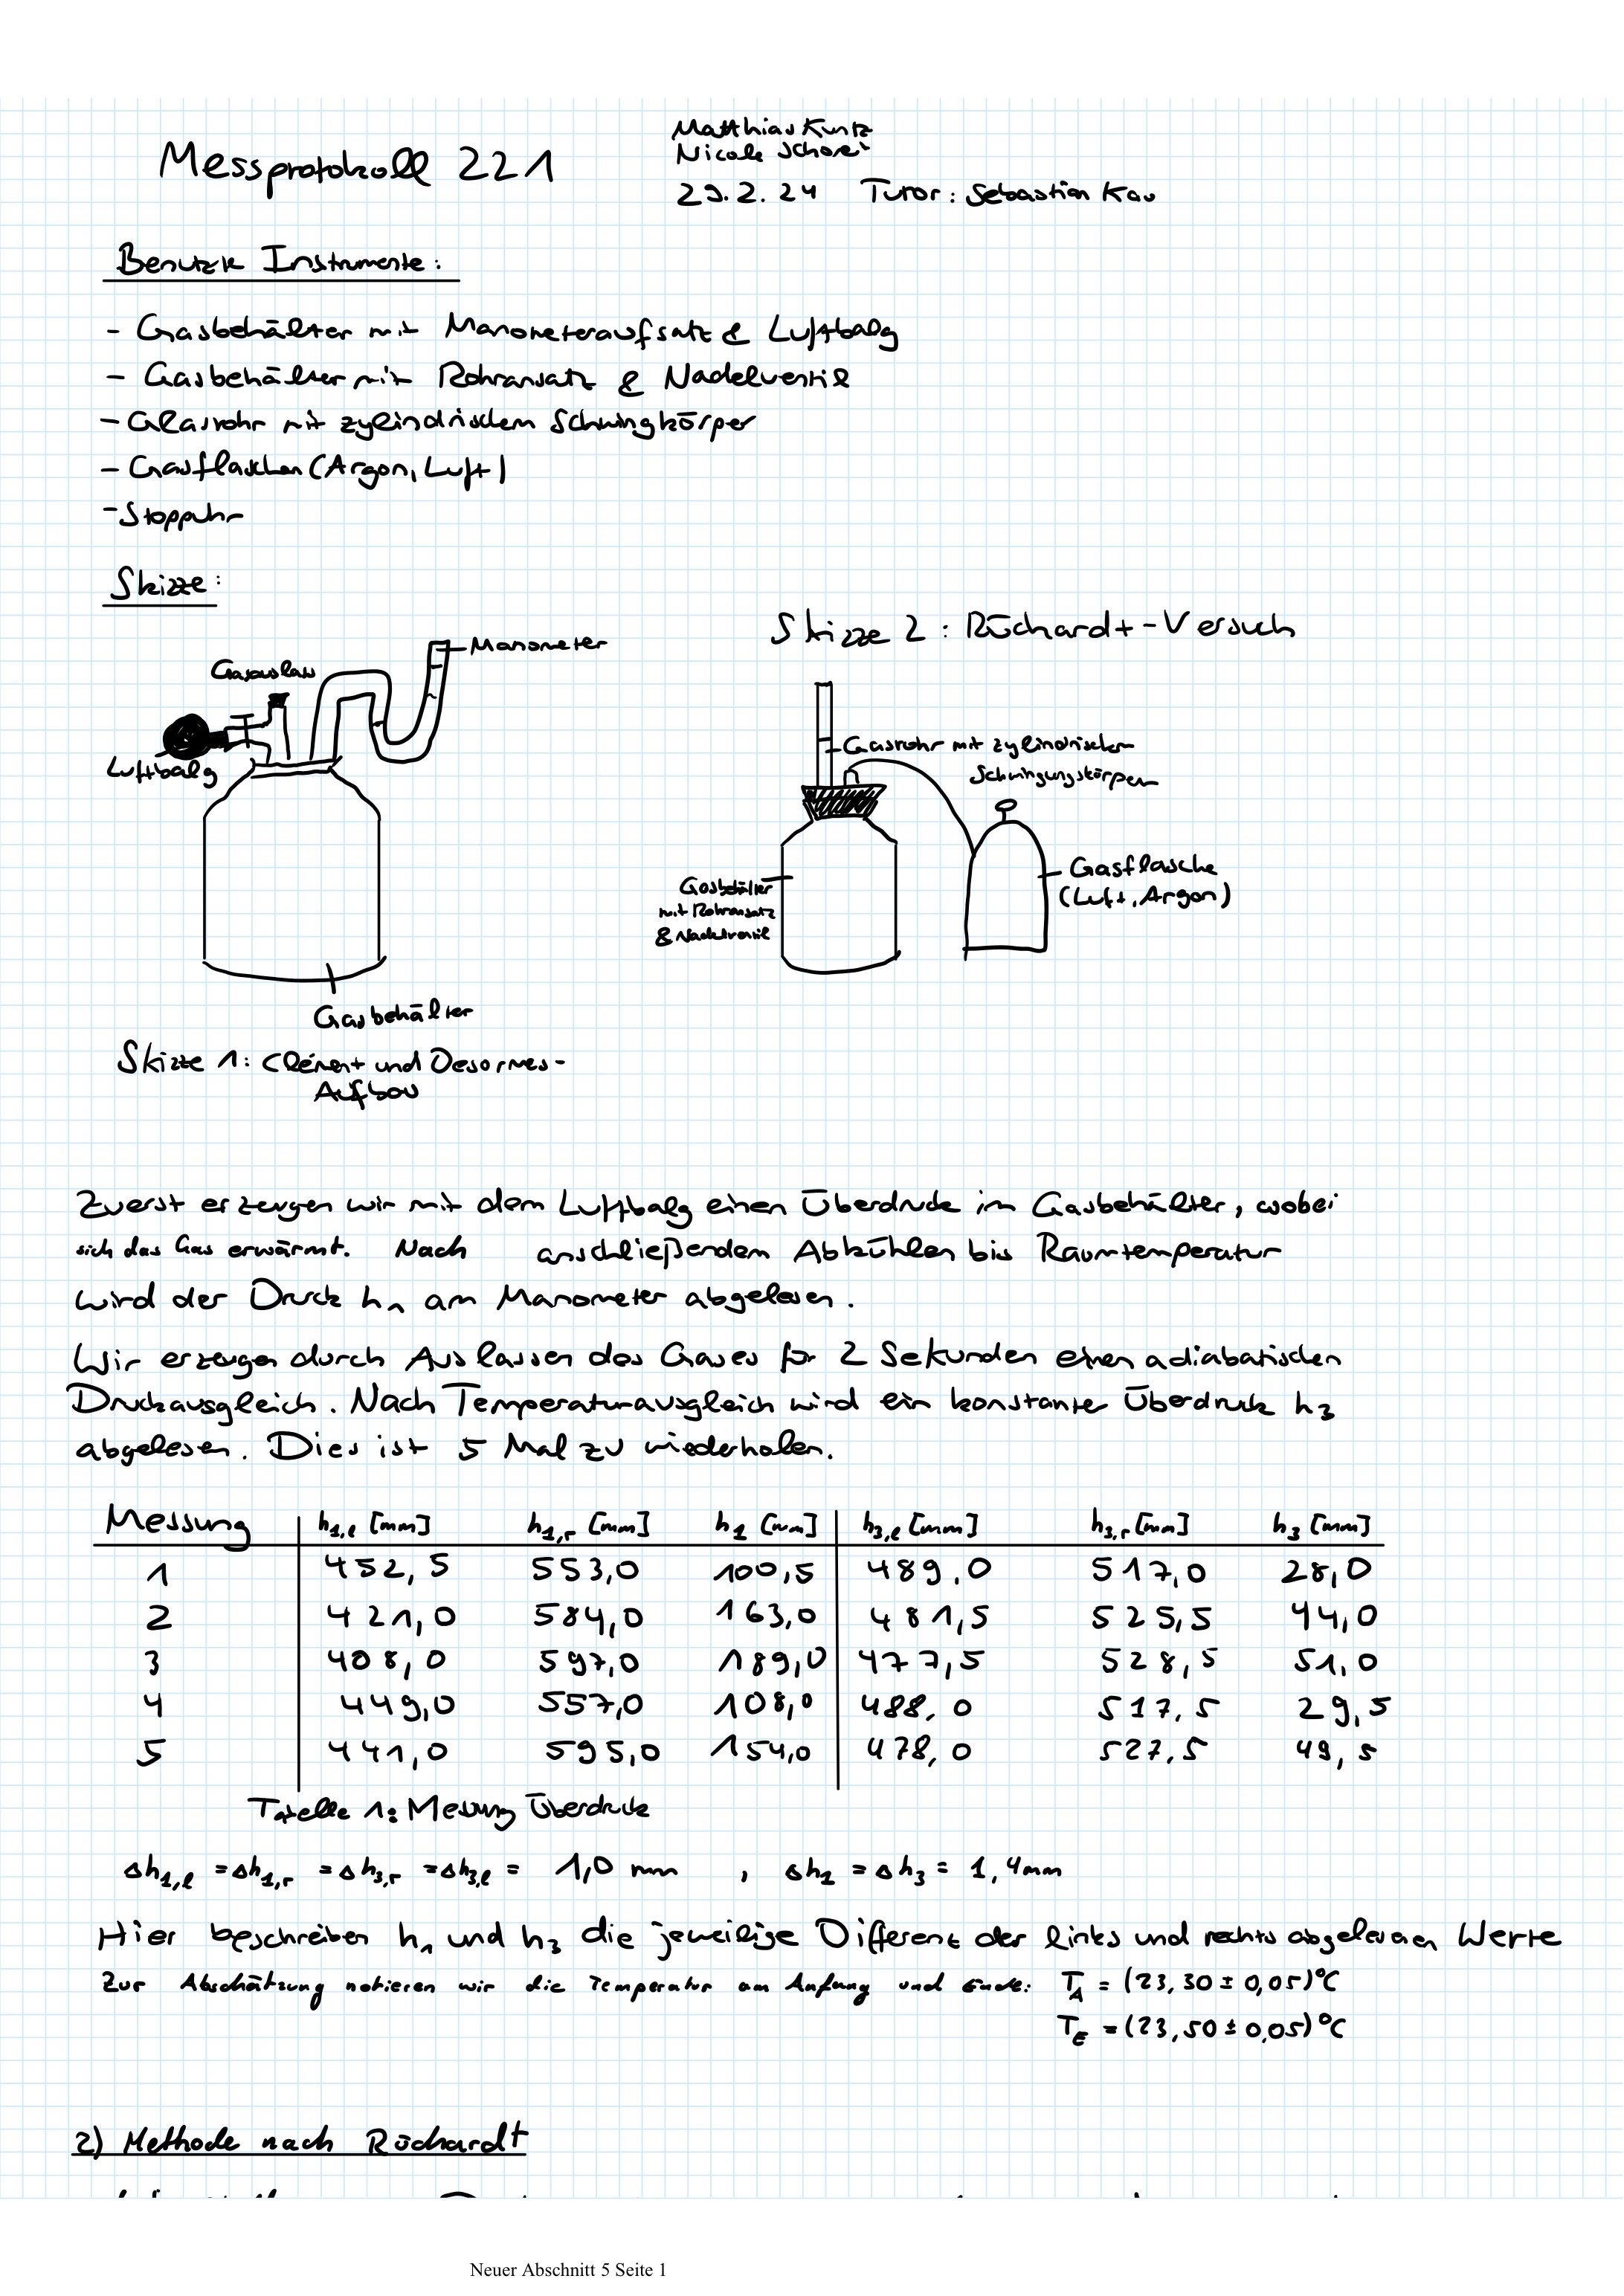 Messprotokoll 221
Matthias Kuntz
Nicole
29.2.24 Tutor: Sebastian
Benutzte Instrumente:
- Gasbehälter mit Manometeraufsatz & Luftbalg
- Gasbehälter mit Rohransatz & Nadelventil
- Glasrohr mit zylindrischem Schwingkörper
- Gasflaschen (Argon, Luft)
- Stoppuhr
Skizze:
Skizze 2: Rüchardt-Versuch
Manometer
Gasauslass
Luftbalg
Gasbehälter
Skizze 1: Clément und Desormes-
Aufbau
Gasrohr mit zylindrischem
Schwingungskörper
Gasbehälter
mit Rohransatz
& Nadelventil
Gasflasche
(Luft, Argon)
Zuerst erzeugen wir mit dem Luftbalg einen Überdruck im Gasbehälter, wobei
sich das Gas erwärmt. Nach anschließendem Abkühlen bis Raumtemperatur
wird der Druck h₁ am Manometer abgelesen.
Wir erzeugen durch Auslassen des Gases für 2 Sekunden einen adiabatischen
Druckausgleich. Nach Temperaturausgleich wird ein konstanter Überdruck h₃
abgelesen. Dies ist 5 Mal zu wiederholen.
Messung h₁,ₗ [mm] h₁,ᵣ [mm] h₁ [mm] h₃,ₗ [mm] h₃,ᵣ [mm] h₃ [mm]
1 452,5 553,0 100,5 489,0 517,0 28,0
2 421,0 584,0 163,0 481,5 525,5 44,0
3 408,0 597,0 189,0 477,5 528,5 51,0
4 449,0 557,0 108,0 488,0 517,5 29,5
5 441,0 595,0 154,0 478,0 527,5 49,5
Tabelle 1: Messung Überdruck
Δh₁,ₗ = Δh₁,ᵣ = Δh₃,ᵣ = Δh₃,ₗ = 1,0 mm , Δh₁ = Δh₃ = 1,4mm
Hier beschreiben h₁ und h₃ die jeweilige Differenz der links und rechts abgelesenen Werte
Zur Abschätzung notieren wir die Temperatur am Anfang und Ende: T_A = (23,30 ± 0,05)°C
T_E = (23,50 ± 0,05)°C
2) Methode nach Rüchardt
Neuer Abschnitt 5 Seite 1